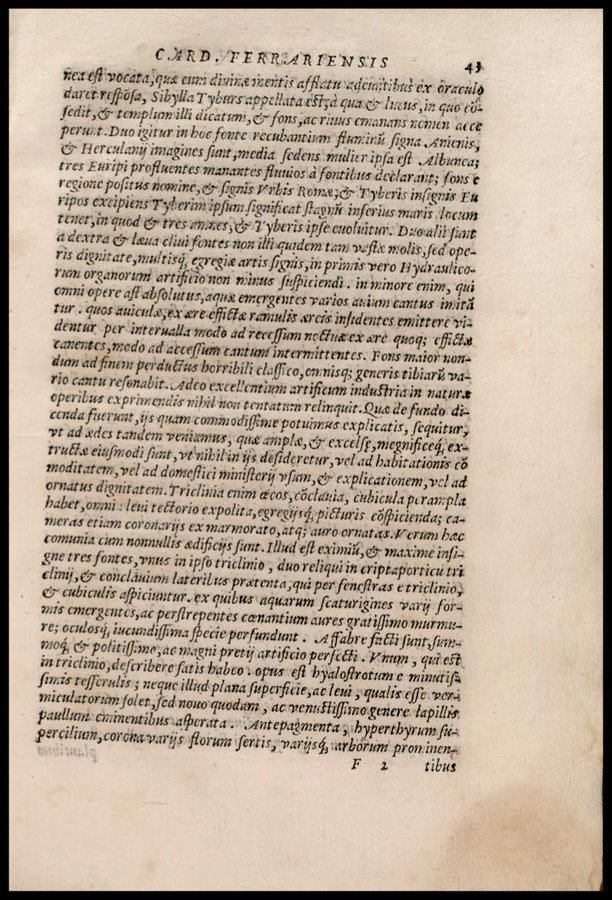 CARD. FERRARIENSIS 43
nea est vocata, quæ cum divinæ mentis afflatu adeuntibus ex oraculo
daret respōsa, Sibylla Tyburs appellata est; à qua & lucus, in quo cō-
sedit, & templum illi dicatum, & fons, ac riuus emanans nomen acce
perunt. Duo igitur in hoc fonte recubantium fluminū signa Anienis,
& Herculanij imagines sunt, media sedens mulier ipsa est Albunea;
tres Euripi profluentes manantes fluuios à fontibus declarant; fons e
regione positus nomine, & signis Vrbis Romæ; & Tyberis insignis Eu
ripos excipiens Tyberim ipsum significat stagnū inferius maris locum
tenet, in quod & tres amnes, & Tyberis ipse euoluitur. Duo alij sunt
a dextra & læua cliui fontes non illi quidem tam vastæ molis, sed ope-
ris dignitate, multisq; egregiæ artis signis, in primis vero Hydraulico-
rum organorum artificio non minus suspiciendi. in minore enim, qui
omni opere est absolutus, aquæ emergentes varios auium cantus imitā
tur. quos auiculæ, ex ære effictæ ramulis æreis insidentes emittere vi-
dentur per interualla modo ad recessum noctuæ ex ære quoq; effictæ
canentes, modo ad accessum cantum intermittentes. Fons maior non-
dum ad finem perductus horribili classico, omnisq; generis tibiarū va-
rio cantu resonabit. Adeo excellentium artificum industria in naturæ
operibus exprimendis nihil non tentatum relinquit. Quæ de fundo di-
cenda fuerunt, ijs quam commodissime potuimus explicatis, sequitur,
vt ad ædes tandem veniamus, quæ amplæ, & excelsę, megnificeq; ex-
tructæ eiusmodi sunt, vt nihil in ijs desideretur, vel ad habitationis cō
moditatem, vel ad domestici ministerij vsum, & explicationem, vel ad
ornatus dignitatem. Triclinia enim œcos, cōclauia, cubicula perampla
habet, omnia leui tectorio expolita, egregijsq; picturis cōspicienda; ca-
meras etiam coronarijs ex marmorato, atq; auro ornatas. Verum hæc
comunia cum nonnullis ædificijs sunt. Illud est eximiū, & maxime insi-
gne tres fontes, vnus in ipso triclinio, duo reliqui in criptaporticu tri
clinij, & conclauium lateribus prætenta, qui per fenestras e triclinio,
& cubiculis aspiciuntur. ex quibus aquarum scaturigines varij for-
mis emergentes, ac perstrepentes cœnantium aures gratissimo murmu-
re; oculosq; iucundissima specie perfundunt. Affabre facti sunt, sum-
moq; & politissimo, ac magni pretij artificio perfecti. Vnum, qui est
in triclinio, describere satis habeo. opus est hyalostrotum e minutis-
simis tesserulis; neque illud plana superficie, ac leui, qualis esse ver-
miculatorum solet, sed nouo quodam, ac venustissimo genere lapillis
paullum eminentibus asperata. Antepagmenta, hyperthyrum su-
percilium, corona varijs florum sertis, varijsq; arborum prominen-
F 2 tibus